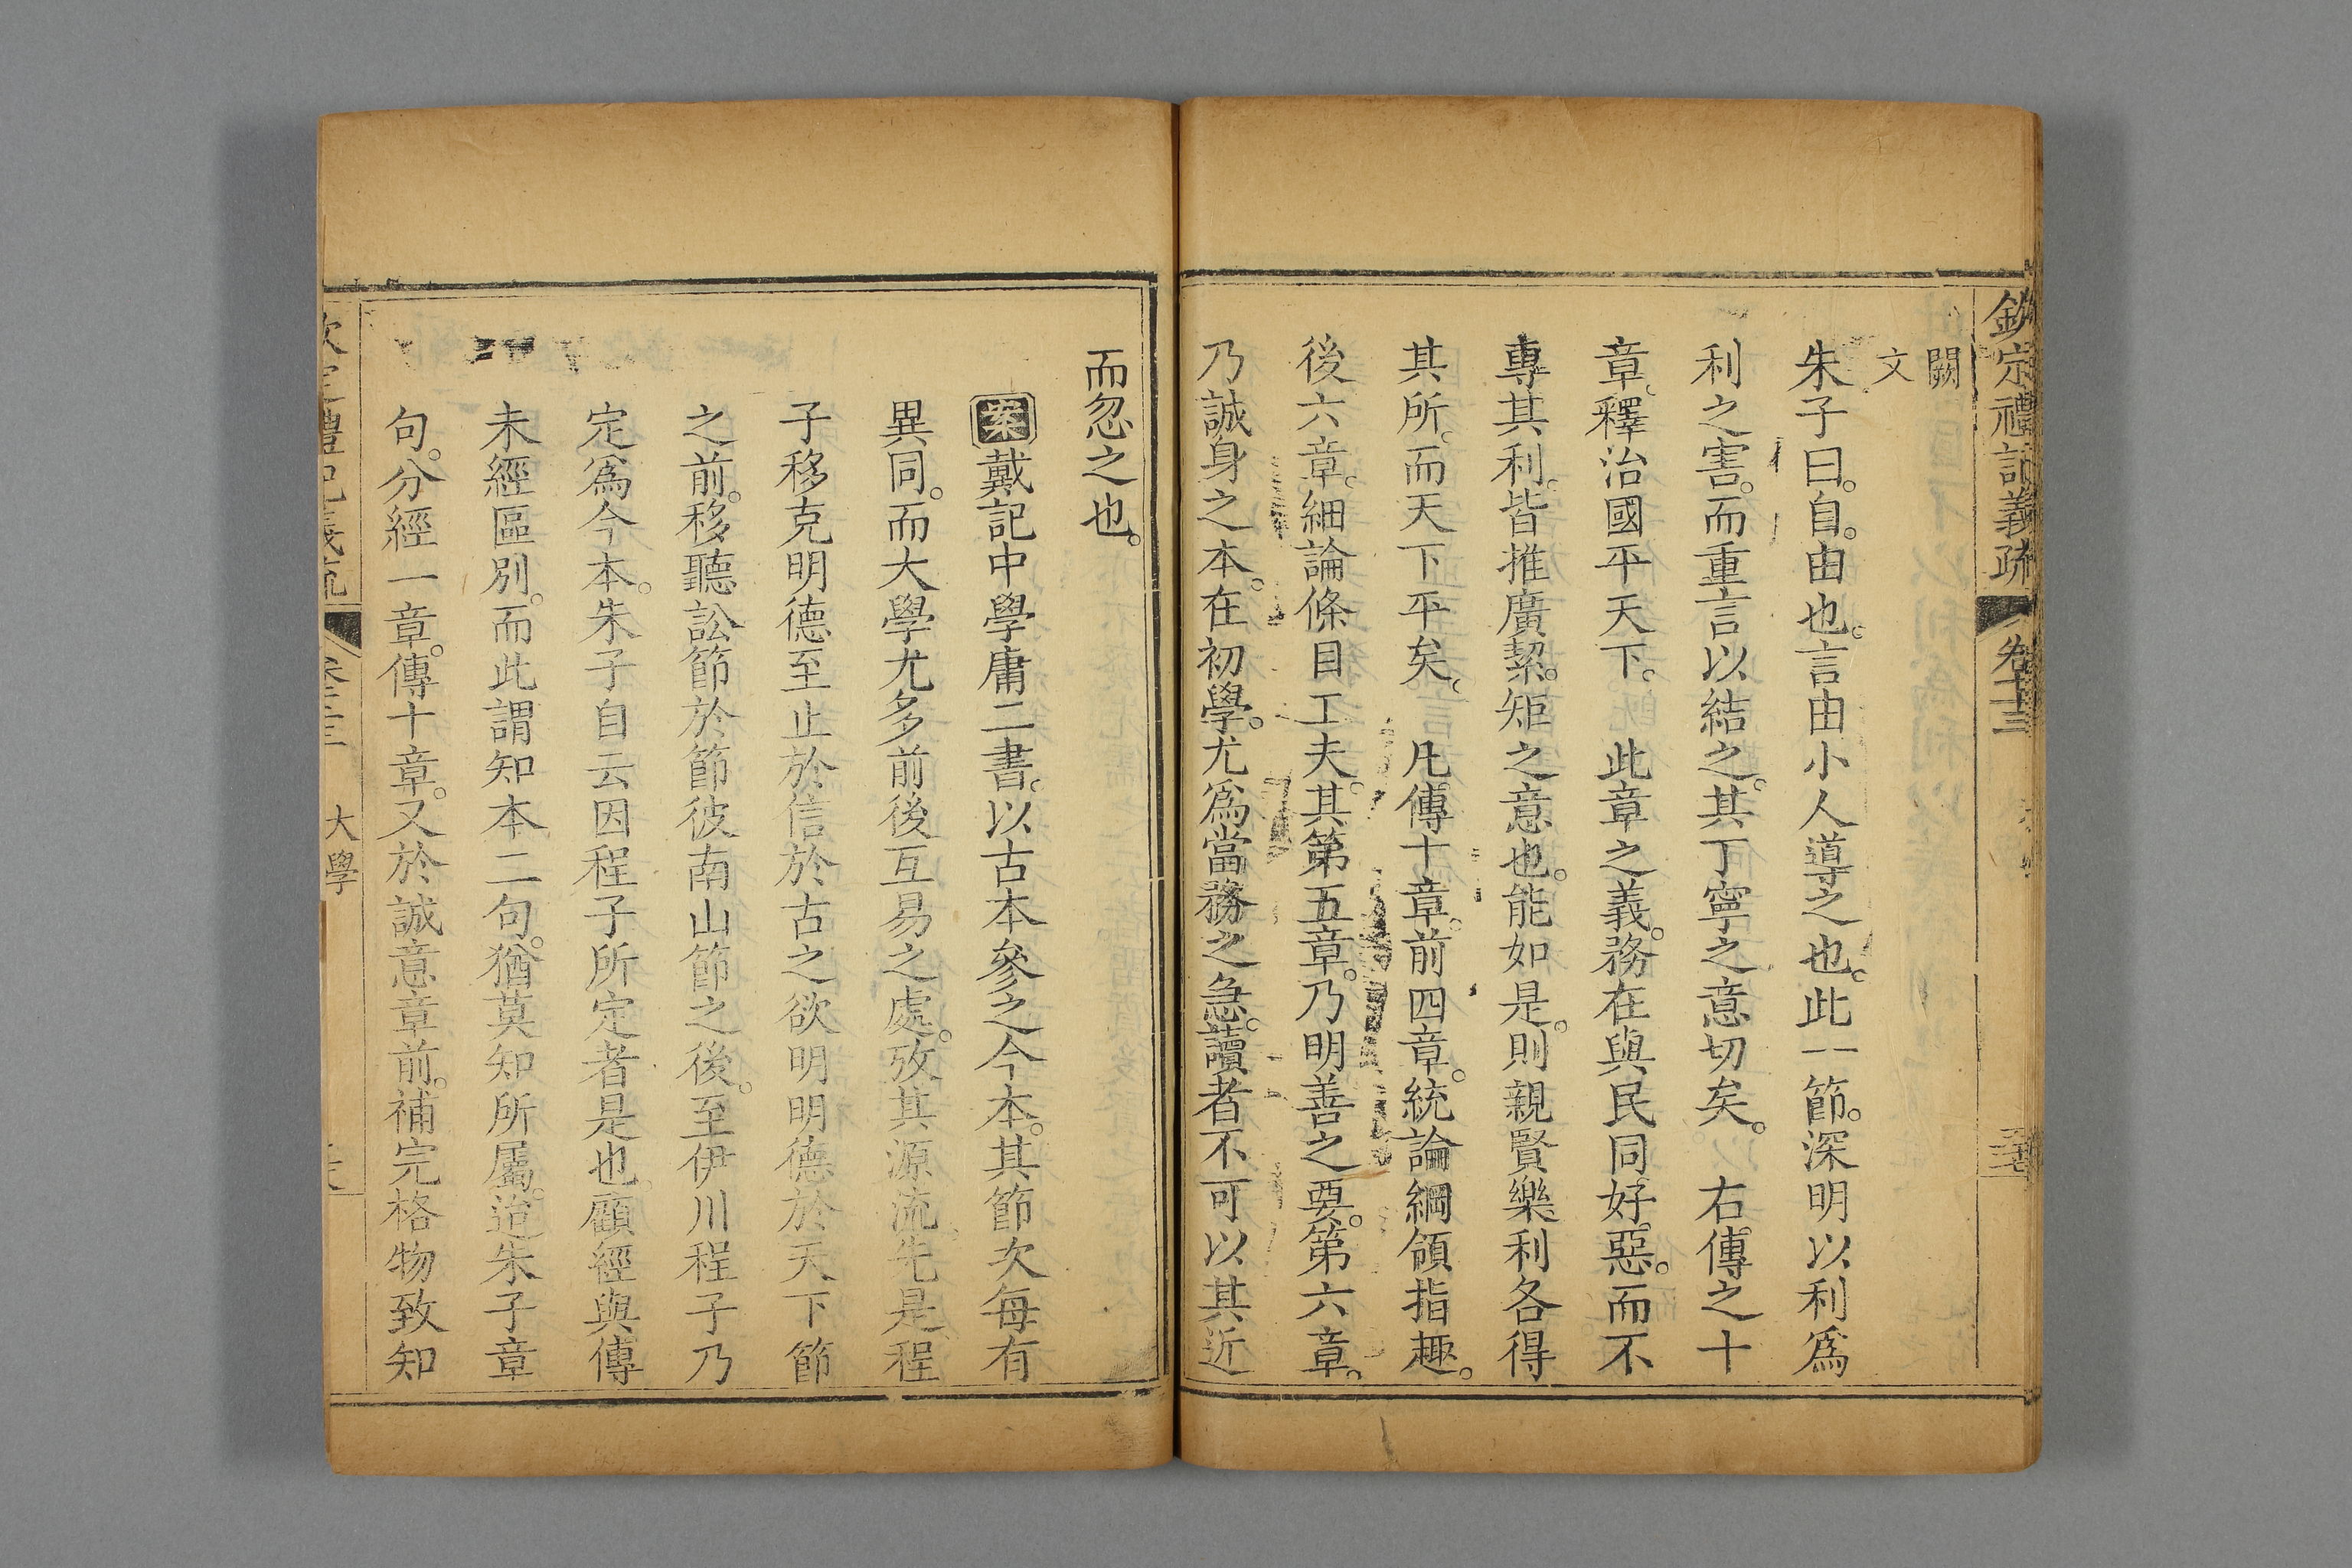 欽定禮記義疏 卷七十三
闕
文
朱子曰。自。由也。言由小人導之也。此一節。深明以利爲
利之害。而重言以結之。其丁寧之意切矣。 右傳之十
章。釋治國平天下。 此章之義。務在與民同好惡。而不
專其利。皆推廣絜矩之意也。能如是。則親賢樂利各得
其所。而天下平矣。 凡傳十章。前四章。統論綱領指趣。
後六章。細論條目工夫。其第五章。乃明善之要。第六章。
乃誠身之本。在初學。尤爲當務之急。讀者不可以其近
而忽之也。
案戴記中學庸二書。以古本參之今本。其節次每有
異同。而大學尤多前後互易之處。攷其源流。先是程
子移克明德至止於信於古之欲明明德於天下節
之前。移聽訟節於節彼南山節之後。至伊川程子乃
定爲今本。朱子自云因程子所定者是也。顧經與傳
未經區別。而此謂知本二句。猶莫知所屬。迨朱子章
句。分經一章。傳十章。又於誠意章前。補完格物致知
欽定禮記義疏 大學